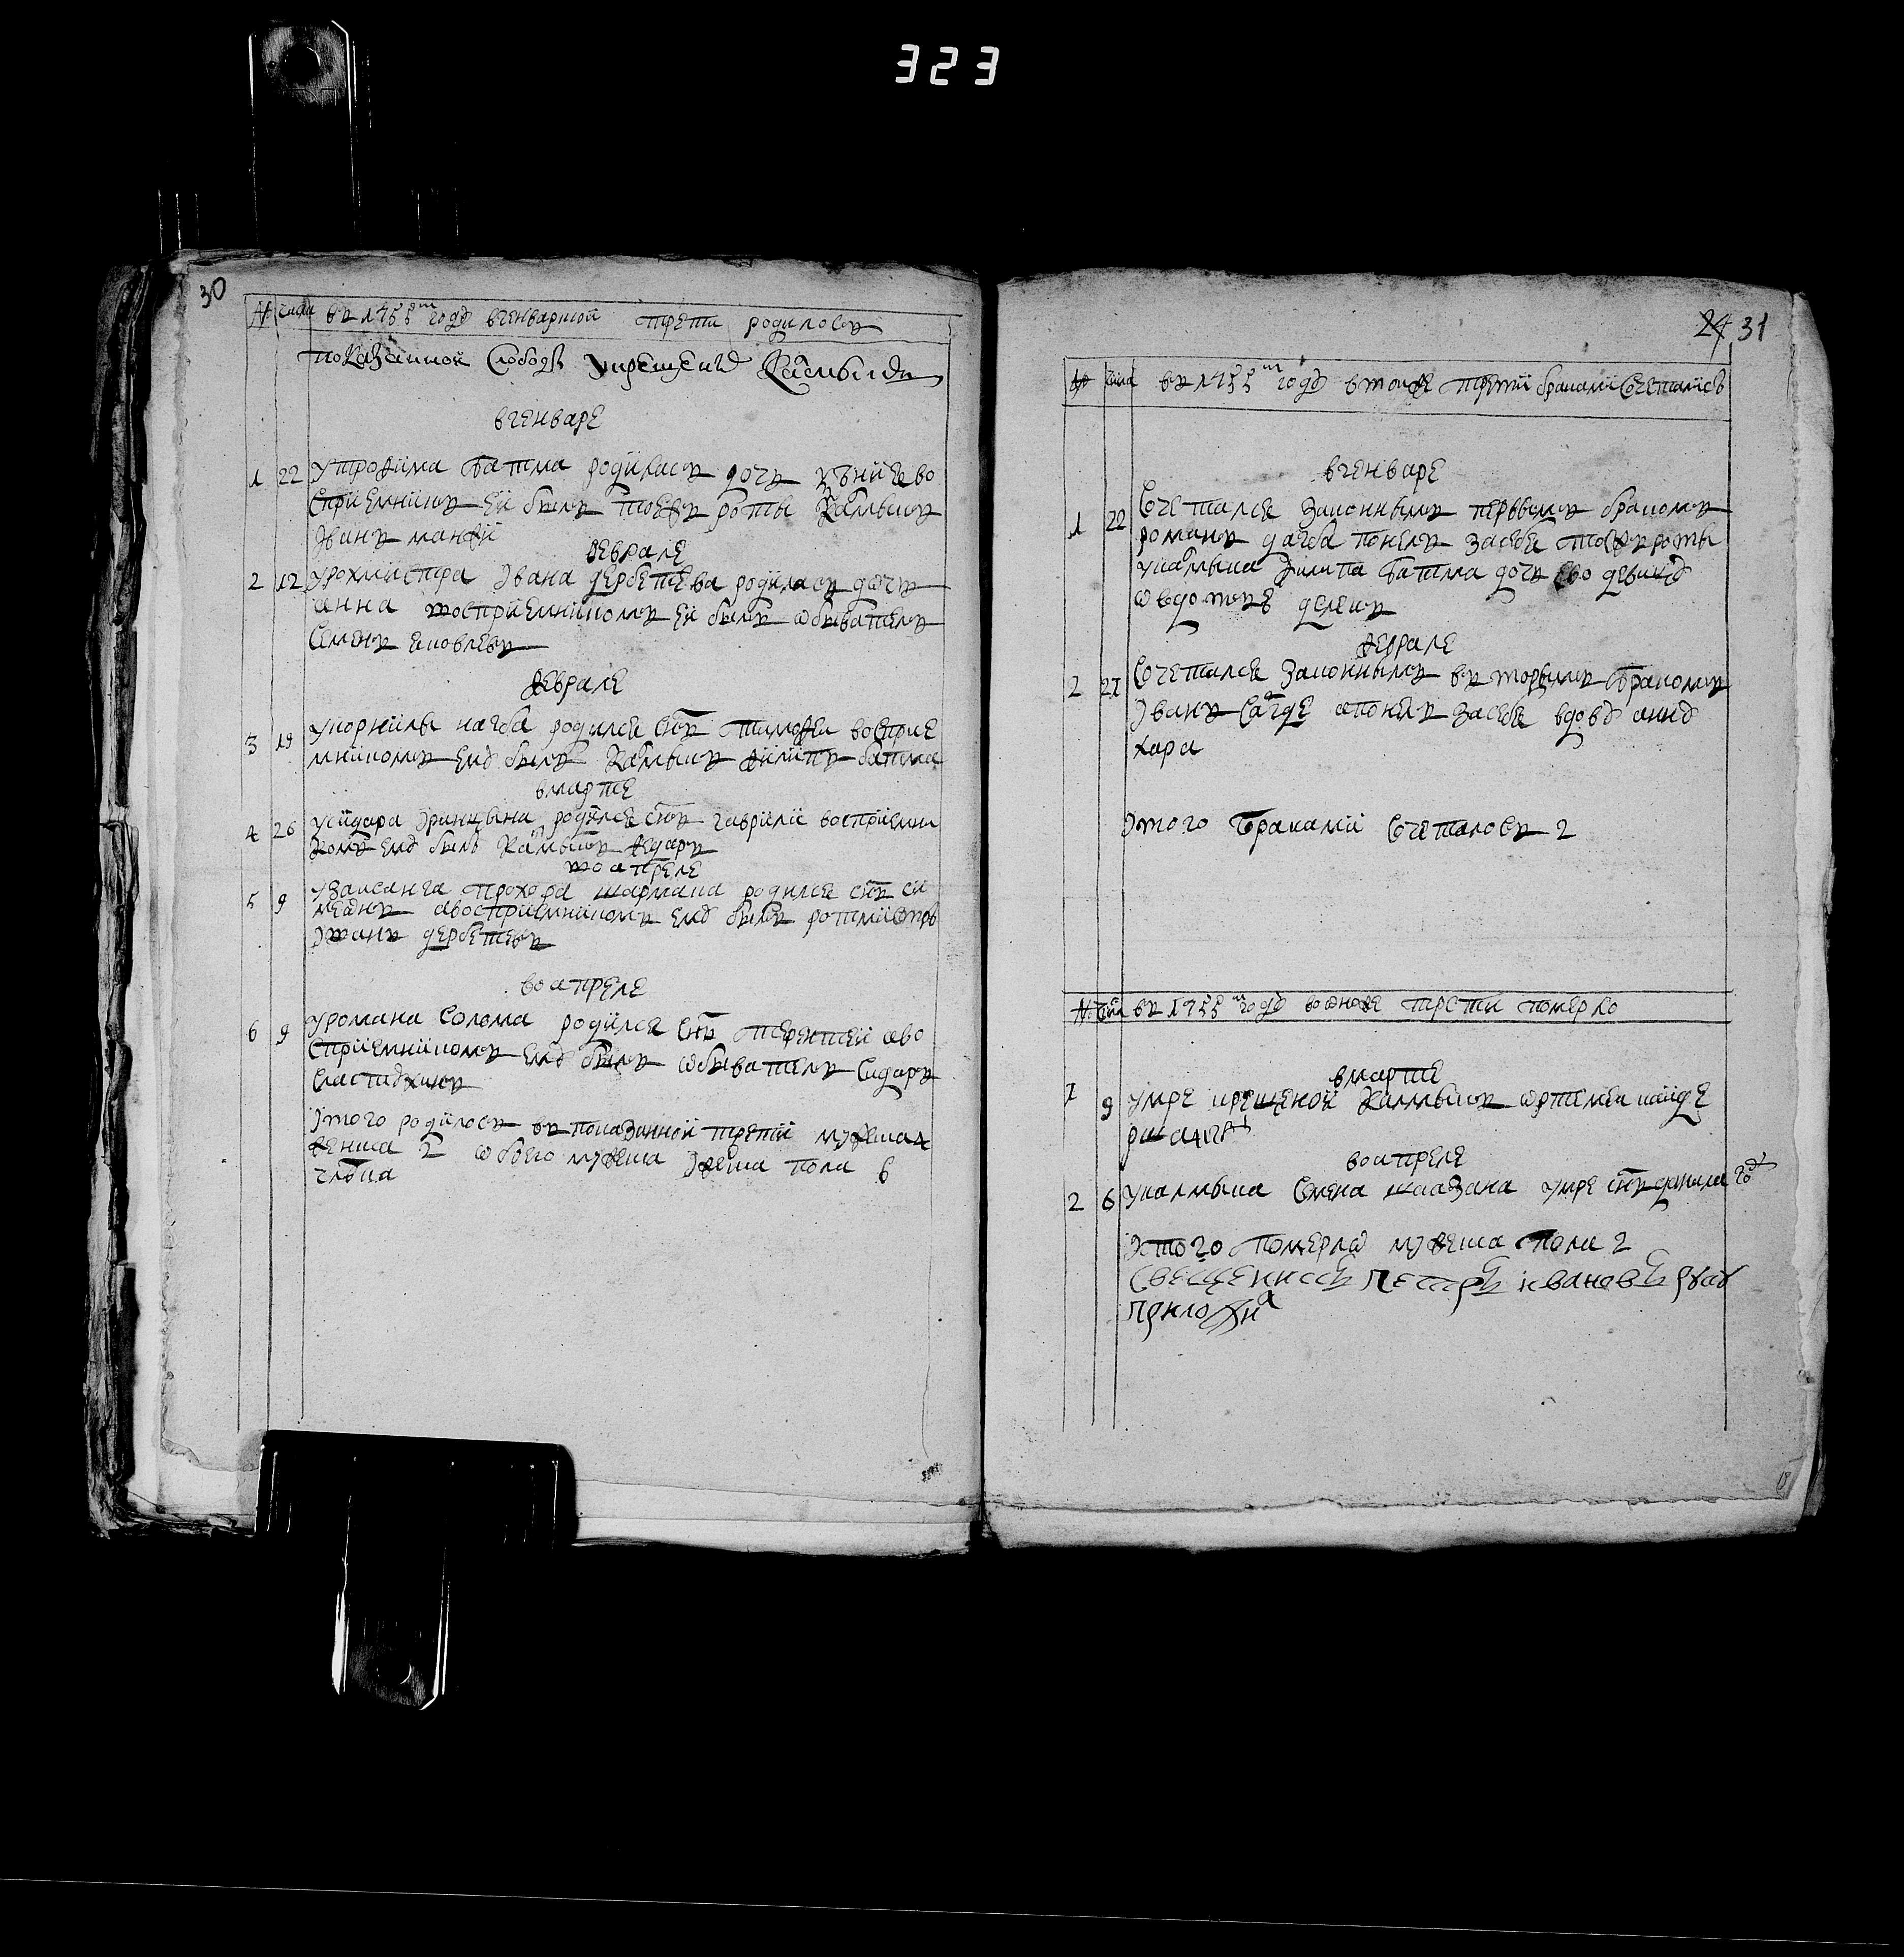 323
30
№ числа въ 1755м году вгенварной трети родилось
показанной слободѣ укрещеных калмыкъ
вгенваре
1 22 Утрофима батма родилась дочь
сприемникъ ей былъ тоежъ роты калмыкъ
Иванъ манжи
феврале
2 12 Уротмистра Ивана дербетева родилась дочь
анна воспрйемникомъ ей былъ обыватель
Семенъ яковлевъ
феврале
3 19 Укорнилы нагба родился снъ тимофеи восприе
мникомъ ему былъ калмыкъ филипъ батма
вмарте
4 26 Усидара родился снъ гаврила восприемни
комъ ему былъ калмыкъ федаръ
воапреле
5 9 Узаисанга прохора шармана родился снъ си
меонъ авоспрйемникомъ ему былъ ротмистръ
Иванъ дербетевъ
воапреле
6 9 Уромана солома родился снъ терентей аво
сприемникомъ ему былъ обыватель Сидаръ
Итого родилось въ показанной трети мужеска 4
женска 2 обоего мужеска Iженска пола 6
24 31
№ числа въ 1755м году втойже трети браками сочеталисъ
вгенваре
1 22 Сочетался законнымъ первымъ бракомъ
романъ дагба понелъ засебя тоежъ роты
укалмыка филипа батма дочь ево девицу
овдотью
феврале
2 21 Сочетался законнымъ въторымъ бракомъ
Иванъ сагде апонелъ засебя вдову анну
хара
Итого браками сочеталось 2
№ числа въ 1755м году воонойже трети померло
вмарте
1 9 умре крещеной калмыкъ ортемеи
воапреле
2 6 Укалмыка Семена шаазана умре снъ данила
Итого померло мужеска пола 2
Священникъ Петръ ивановъ руку
приложи л